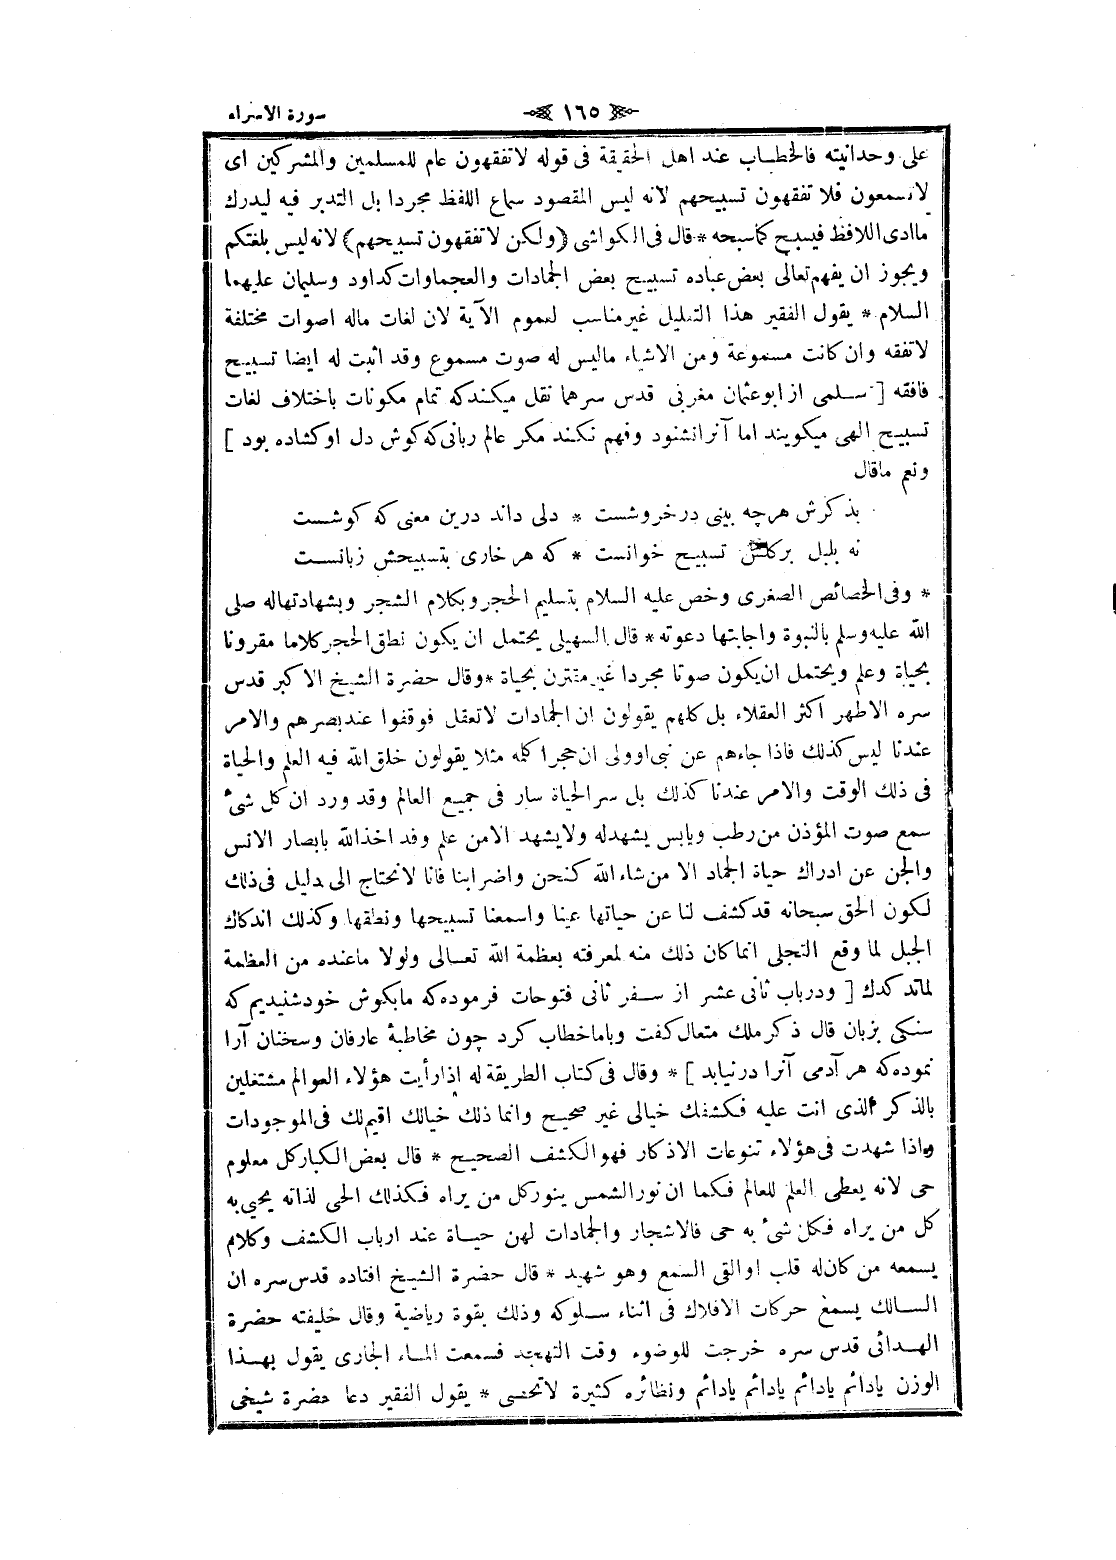 سورة الاسراء
١٦٥
على وحدانيته فالخطاب عند اهل الحقيقة فى قوله لاتفقهون عام للمسلمين والمشركين اى
لاتسمعون فلا تفقهون تسبيحهم لانه ليس المقصود سماع اللفظ مجردا بل التدبر فيه ليدرك
ماادى اللافظ فيسبح كماسبحه * قال فى الكواشى (ولكن لاتفقهون تسبيحهم) لانه ليس بلغتكم
ويجوز ان يفهم تعالى بعض عباده تسبيح بعض الجمادات والعجماوات كداود وسليمان عليهما
السلام * يقول الفقير هذا التعليل غير مناسب لعموم الآية لان لغات ماله اصوات مختلفة
لاتفقه وان كانت مسموعة ومن الاشياء ماليس له صوت مسموع وقد اثبت له ايضا تسبيح
فافقه [ سلمى از ابو عثمان مغربى قدس سرهما نقل ميكندكه تمام مكونات باختلاف لغات
تسبيح الهى ميكويند اما آنرانشنود وفهم نكند مكر عالم ربانى كه كوش دل اوكشاده بود ]
ونعم ماقال
بذكرش هرچه بينى درخروشست * دلى داند درين معنى كه كوشست
نه بلبل بركلش تسبيح خوانست * كه هر خارى بتسبيحش زبانست
* وفى الخصائص الصغرى وخص عليه السلام بتسليم الحجر وبكلام الشجر وبشهادتهاله صلى
الله عليه وسلم بالنبوة واجابتها دعوته * قال السهيلى يحتمل ان يكون نطق الحجر كلاما مقرونا
بحياة وعلم ويحتمل ان يكون صوتا مجردا غير مقترن بحياة * وقال حضرة الشيخ الاكبر قدس
سره الاطهر اكثر العقلاء بل كلهم يقولون ان الجمادات لاتعقل فوقفوا عند بصرهم والامر
عندنا ليس كذلك فاذا جاءهم عن نبى اوولى ان حجرا كلمه مثلا يقولون خلق الله فيه العلم والحياة
فى ذلك الوقت والامر عندنا كذلك بل سر الحياة سار فى جميع العالم وقد ورد ان كل شئ
سمع صوت المؤذن من رطب ويابس يشهدله ولايشهد الامن علم وقد اخذالله بابصار الانس
والجن عن ادراك حياة الجماد الا من شاء الله كنحن واضرابنا فانا لانحتاج الى دليل فى ذلك
لكون الحق سبحانه قد كشف لنا عن حياتها عينا واسمعنا تسبيحها ونطقها وكذلك اندكاك
الجبل لما وقع التجلى انما كان ذلك منه لمعرفته بعظمة الله تعالى ولولا ماعنده من العظمة
لماتدكدك [ ودرباب ثانى عشر از سفر ثانى فتوحات فرموده كه مابكوش خودشنيديم كه
سنكى بزبان قال ذكر ملك متعال كفت وباماخطاب كرد چون مخاطبهٔ عارفان وسخنان آرا
نموده كه هر آدمى آنرا درنيابد ] * وقال فى كتاب الطريقة له اذارأيت هؤلاء العوالم مشتغلين
بالذكر الذى انت عليه فكشفك خيالى غير صحيح وانما ذلك خيالك اقيم لك فى الموجودات
واذا شهدت فى هؤلاء تنوعات الاذكار فهو الكشف الصحيح * قال بعض الكبار كل معلوم
حى لانه يعطى العلم للعالم فكما ان نور الشمس ينور كل من يراه فكذلك الحى لذاته يحيى به
كل من يراه فكل شئ به حى فالاشجار والجمادات لهن حياة عند ارباب الكشف وكلام
يسمعه من كان له قلب اوالقى السمع وهو شهيد * قال حضرة الشيخ افتاده قدس سره ان
السالك يسمع حركات الافلاك فى اثناء سلوكه وذلك بقوة رياضية وقال خليفته حضرة
الهدائى قدس سره خرجت للوضوء وقت التهجد فسمعت الماء الجارى يقول بهذا
الوزن يادائم يادائم يادائم يادائم ونظائره كثيرة لاتحصى * يقول الفقير دعا حضرة شيخى